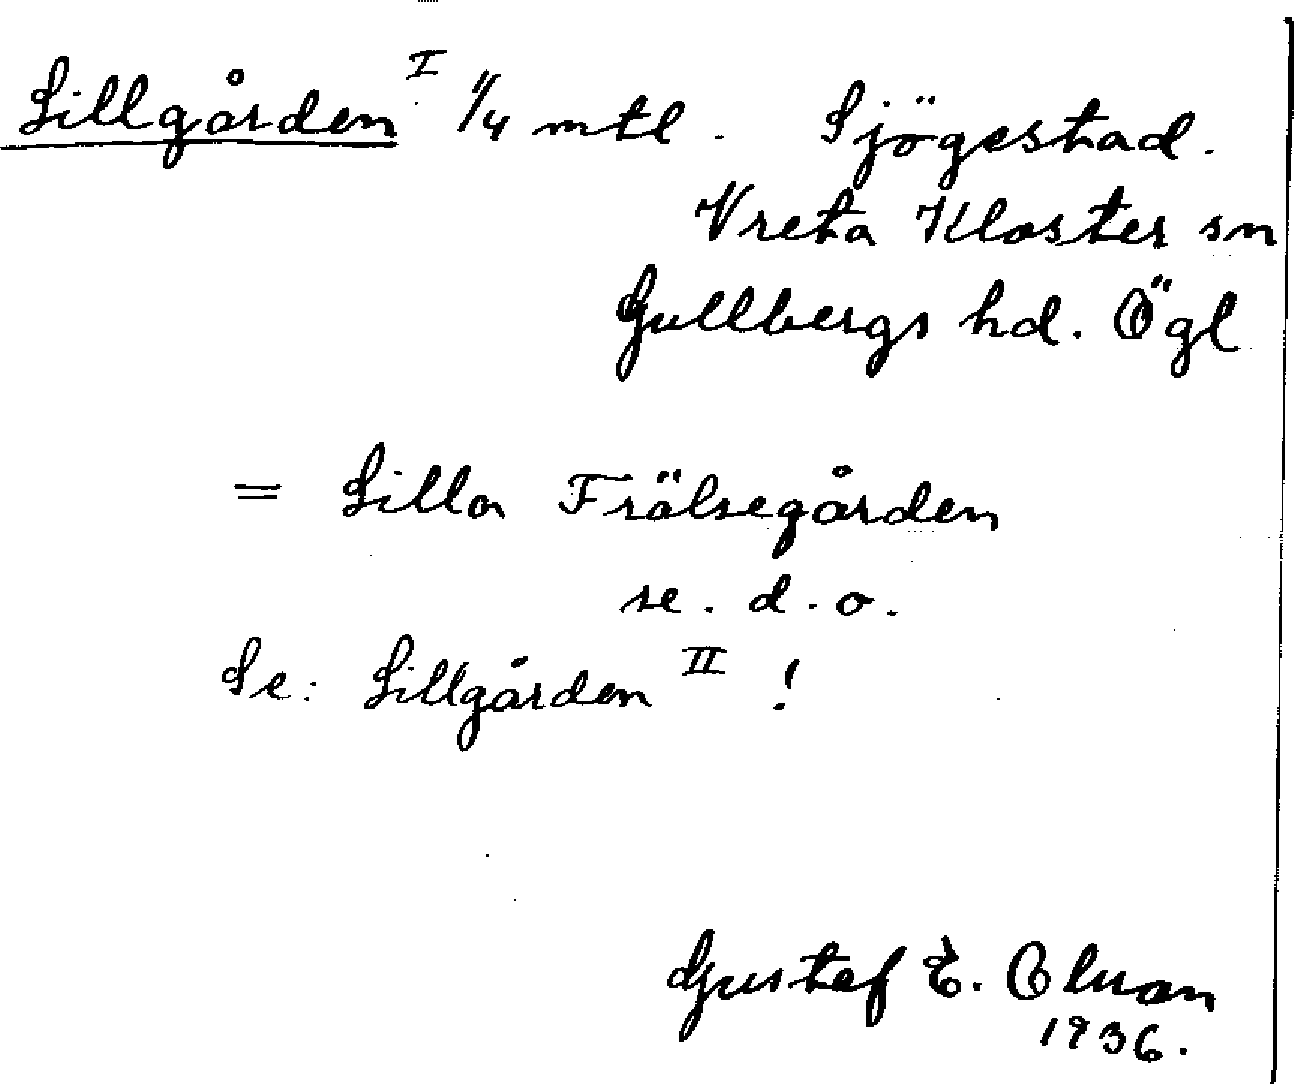 Lillgården I 1/4 mtl. Sjögestad.
Vreta Kloster sn
Gullbergs hd. Ögl
= Lilla Frälsegården
se. d.o.
Se: Lillgården II !
Gustaf E. Olson
1936.